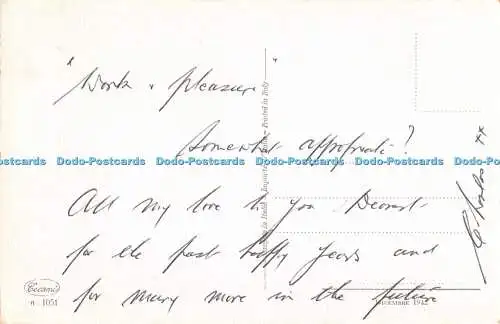 " Work & pleasure "
Somewhat appropriate?
Dodo-Postcards Dodo-Postcards Dodo-Postcards Dodo-Postcards Dodo-Postcards
All my love to you Dearest
for the past happy years and
for many more in the future
xx
Cecami
n. 1051
Printed in Italy